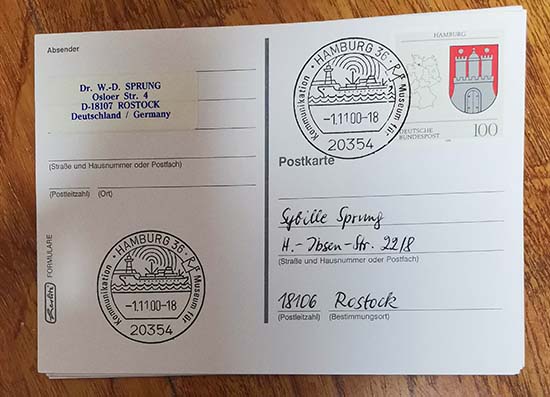 Absender
Dr. W.-D. SPRUNG
Osloer Str. 4
D-18107 ROSTOCK
Deutschland / Germany
(Straße und Hausnummer oder Postfach)
(Postleitzahl) (Ort)
HAMBURG 36
Museum für
Kommunikation
-1.11.00-18
20354
Herlitz FORMULARE
HAMBURG
DEUTSCHE
BUNDESPOST
100
HAMBURG 36
Museum für
Kommunikation
-1.11.00-18
20354
Postkarte
Sybille Sprung
H.-Ibsen-Str. 22/8
(Straße und Hausnummer oder Postfach)
18106 Rostock
(Postleitzahl) (Bestimmungsort)